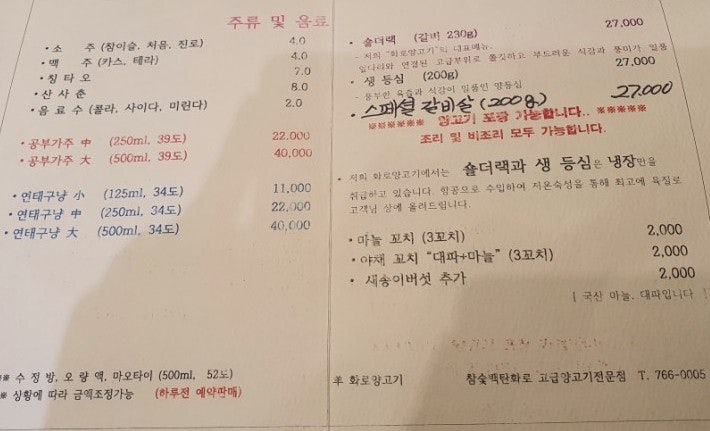 주류 및 음료
• 소 주 (참이슬, 처음, 진로) 4.0
• 맥 주 (카스, 테라) 4.0
• 칭 타 오 7.0
• 산 사 춘 8.0
• 음 료 수 (콜라, 사이다, 미린다) 2.0
• 공부가주 中 (250ml, 39도) 22.000
• 공부가주 大 (500ml, 39도) 40,000
• 연태구냥 小 (125ml, 34도) 11,000
• 연태구냥 中 (250ml, 34도) 22,000
• 연태구냥 大 (500ml, 34도) 40,000
※※ 수 정 방, 오 량 액, 마오타이 (500ml, 52도)
※ 상황에 따라 금액조정가능 (하루전 예약판매)
• 숄더랙 (갈비 230g) 27,000
- 저희 "화로양고기"의 대표메뉴.
앞다리와 연결된 고급부위로 쫄깃하고 부드러운 식감과 풍미가 일품
• 생 등심 (200g) 27,000
- 풍부한 육즙과 식감이 일품인 양등심
• 스페셜 갈비살 (200g) 27,000
※※※※※※ 양고기 포장 가능합니다.. ※※※※※
조리 및 비조리 모두 가능합니다.
• 저희 화로양고기에서는 숄더랙과 생 등심은 냉장만을
취급하고 있습니다. 항공으로 수입하여 저온숙성을 통해 최고에 육질로
고객님 상에 올려드립니다.
• 마늘 꼬치 (3꼬치) 2,000
• 야채 꼬치 "대파+마늘" (3꼬치) 2,000
• 새송이버섯 추가 2,000
[ 국산 마늘, 대파입니다 ]
羊 화로양고기 참숯백탄화로 고급양고기전문점 T. 766-0005